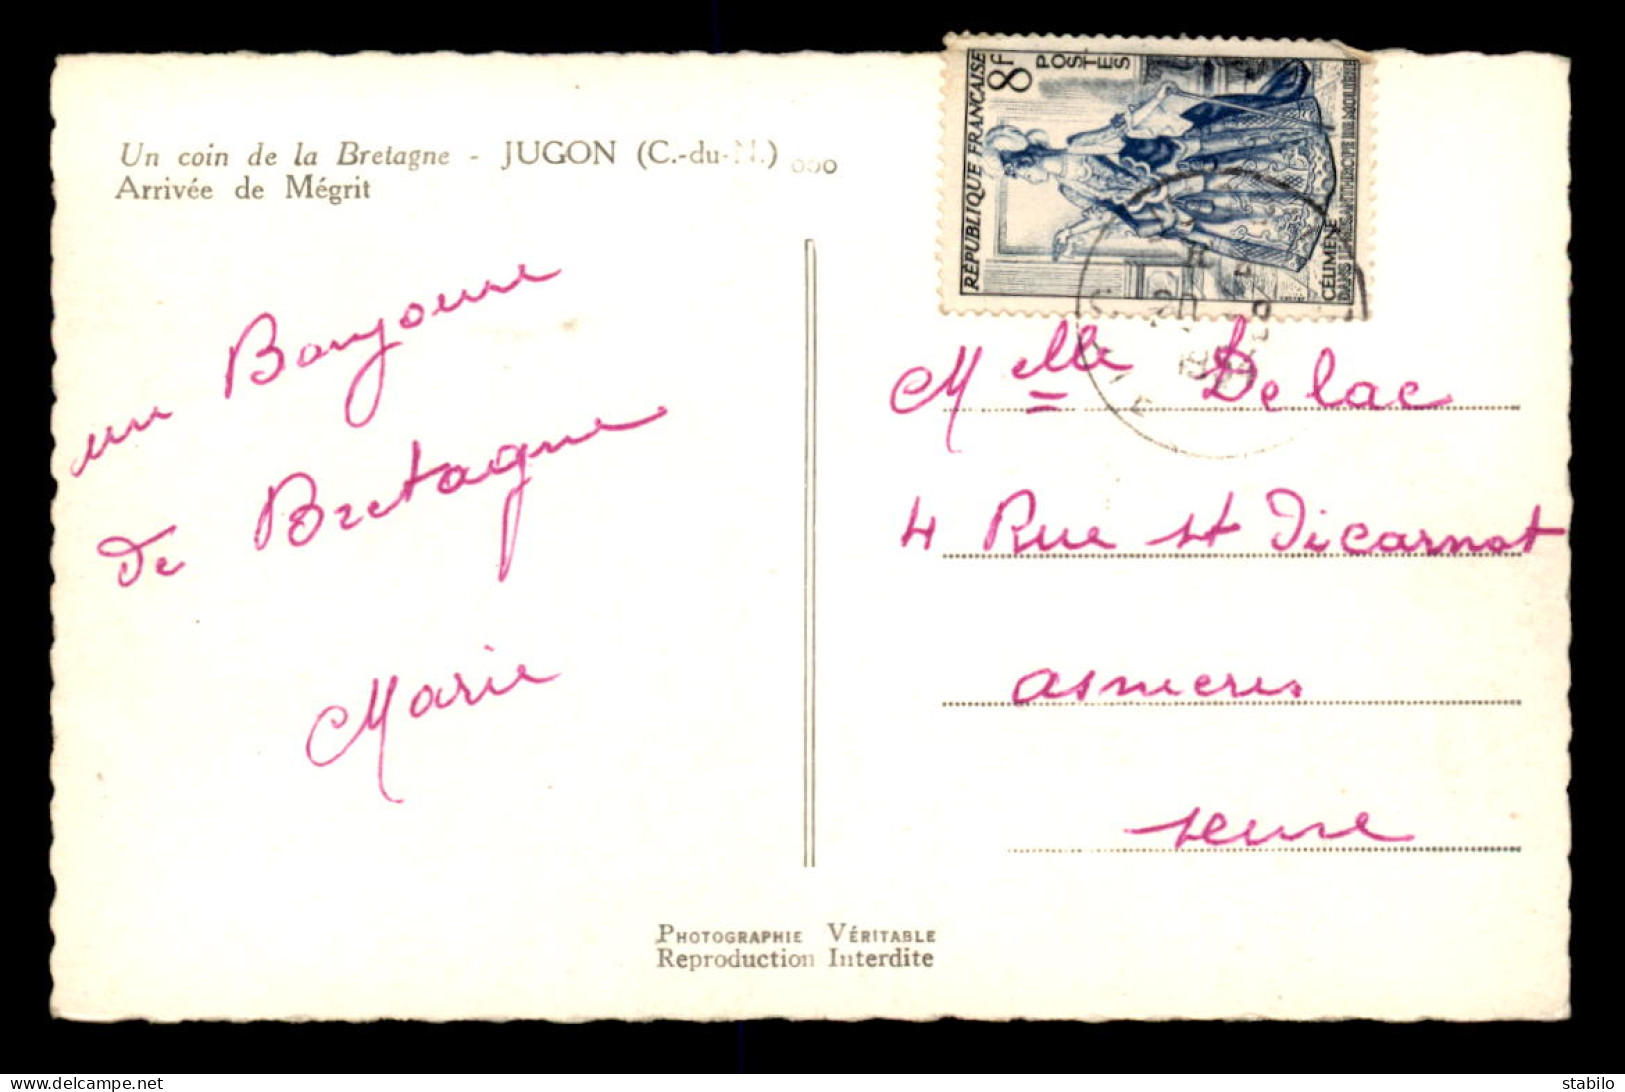 Un coin de la Bretagne - JUGON (C.-du-N.)
Arrivée de Mégrit
un Bonjour
de Bretagne
Marie
RÉPUBLIQUE FRANÇAISE
8F
POSTES
CÉLIMÈNE
DANS LE MISANTHROPE DE MOLIÈRE
Melle Delac
4 Rue st Dicarnot
asnieres
seine
PHOTOGRAPHIE VÉRITABLE
Reproduction Interdite
stabilo
delcampe.net